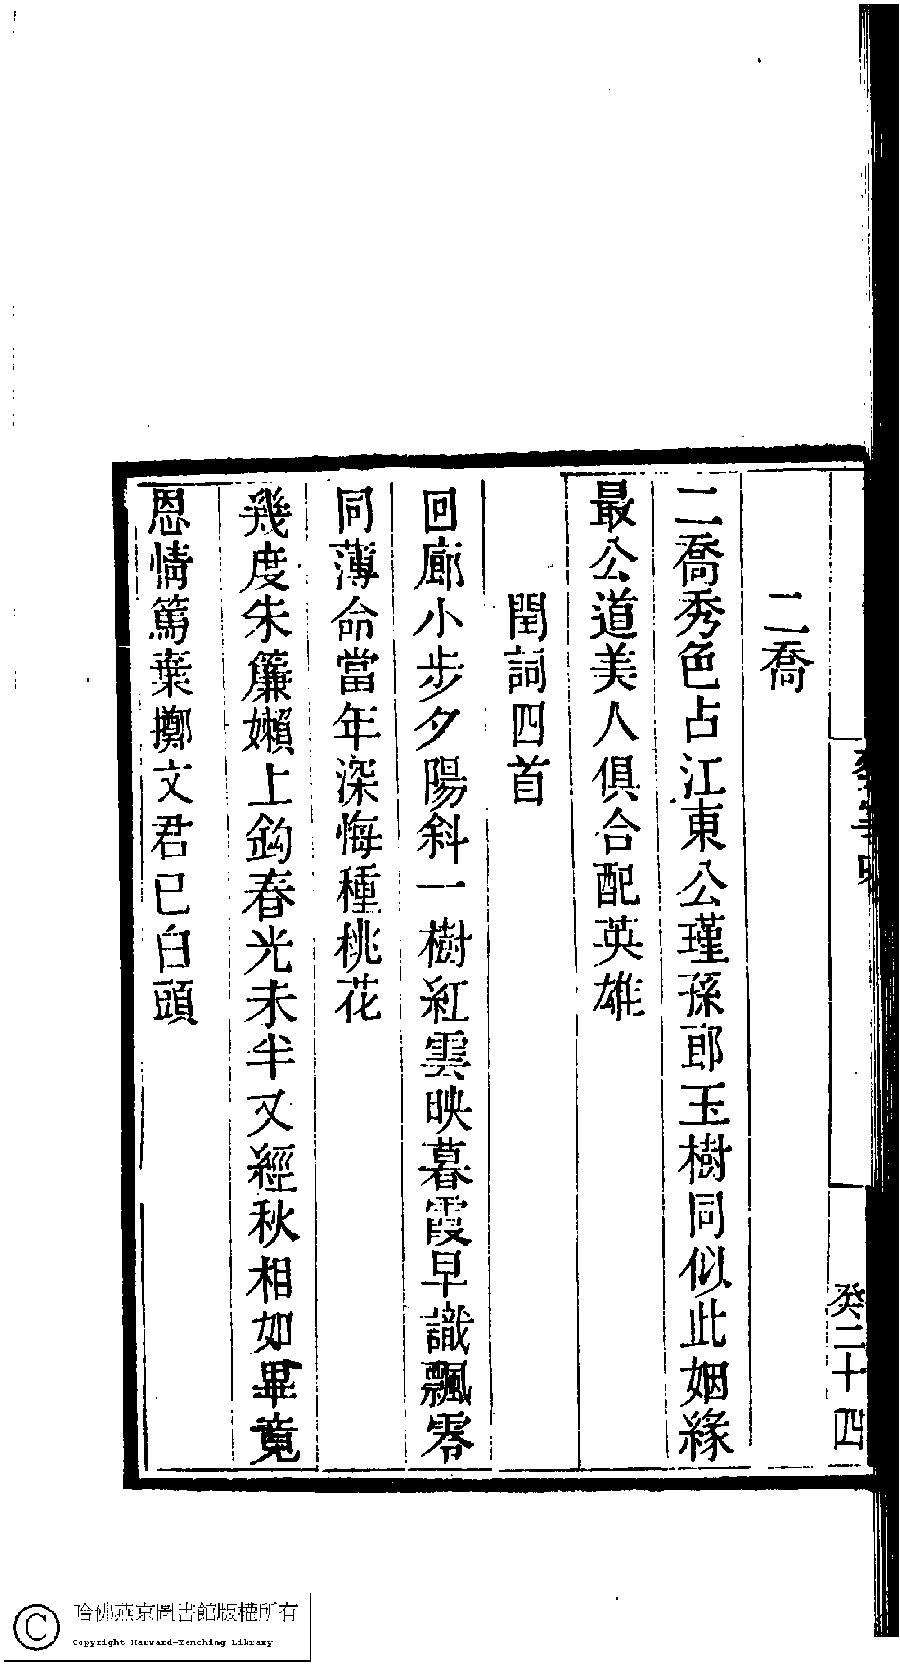 二喬
二喬秀色占江東公瑾孫郎玉樹同似此姻緣
最公道美人俱合配英雄
閏詞四首
回廊小步夕陽斜一樹紅雲映暮霞早識飄零
同薄命當年深悔種桃花
幾度朱簾嬾上鈎春光未半又經秋相如畢竟
恩情篤棄擲文君已白頭
癸二十四
哈佛燕京圖書館版權所有
Copyright Harvard-Yenching Library